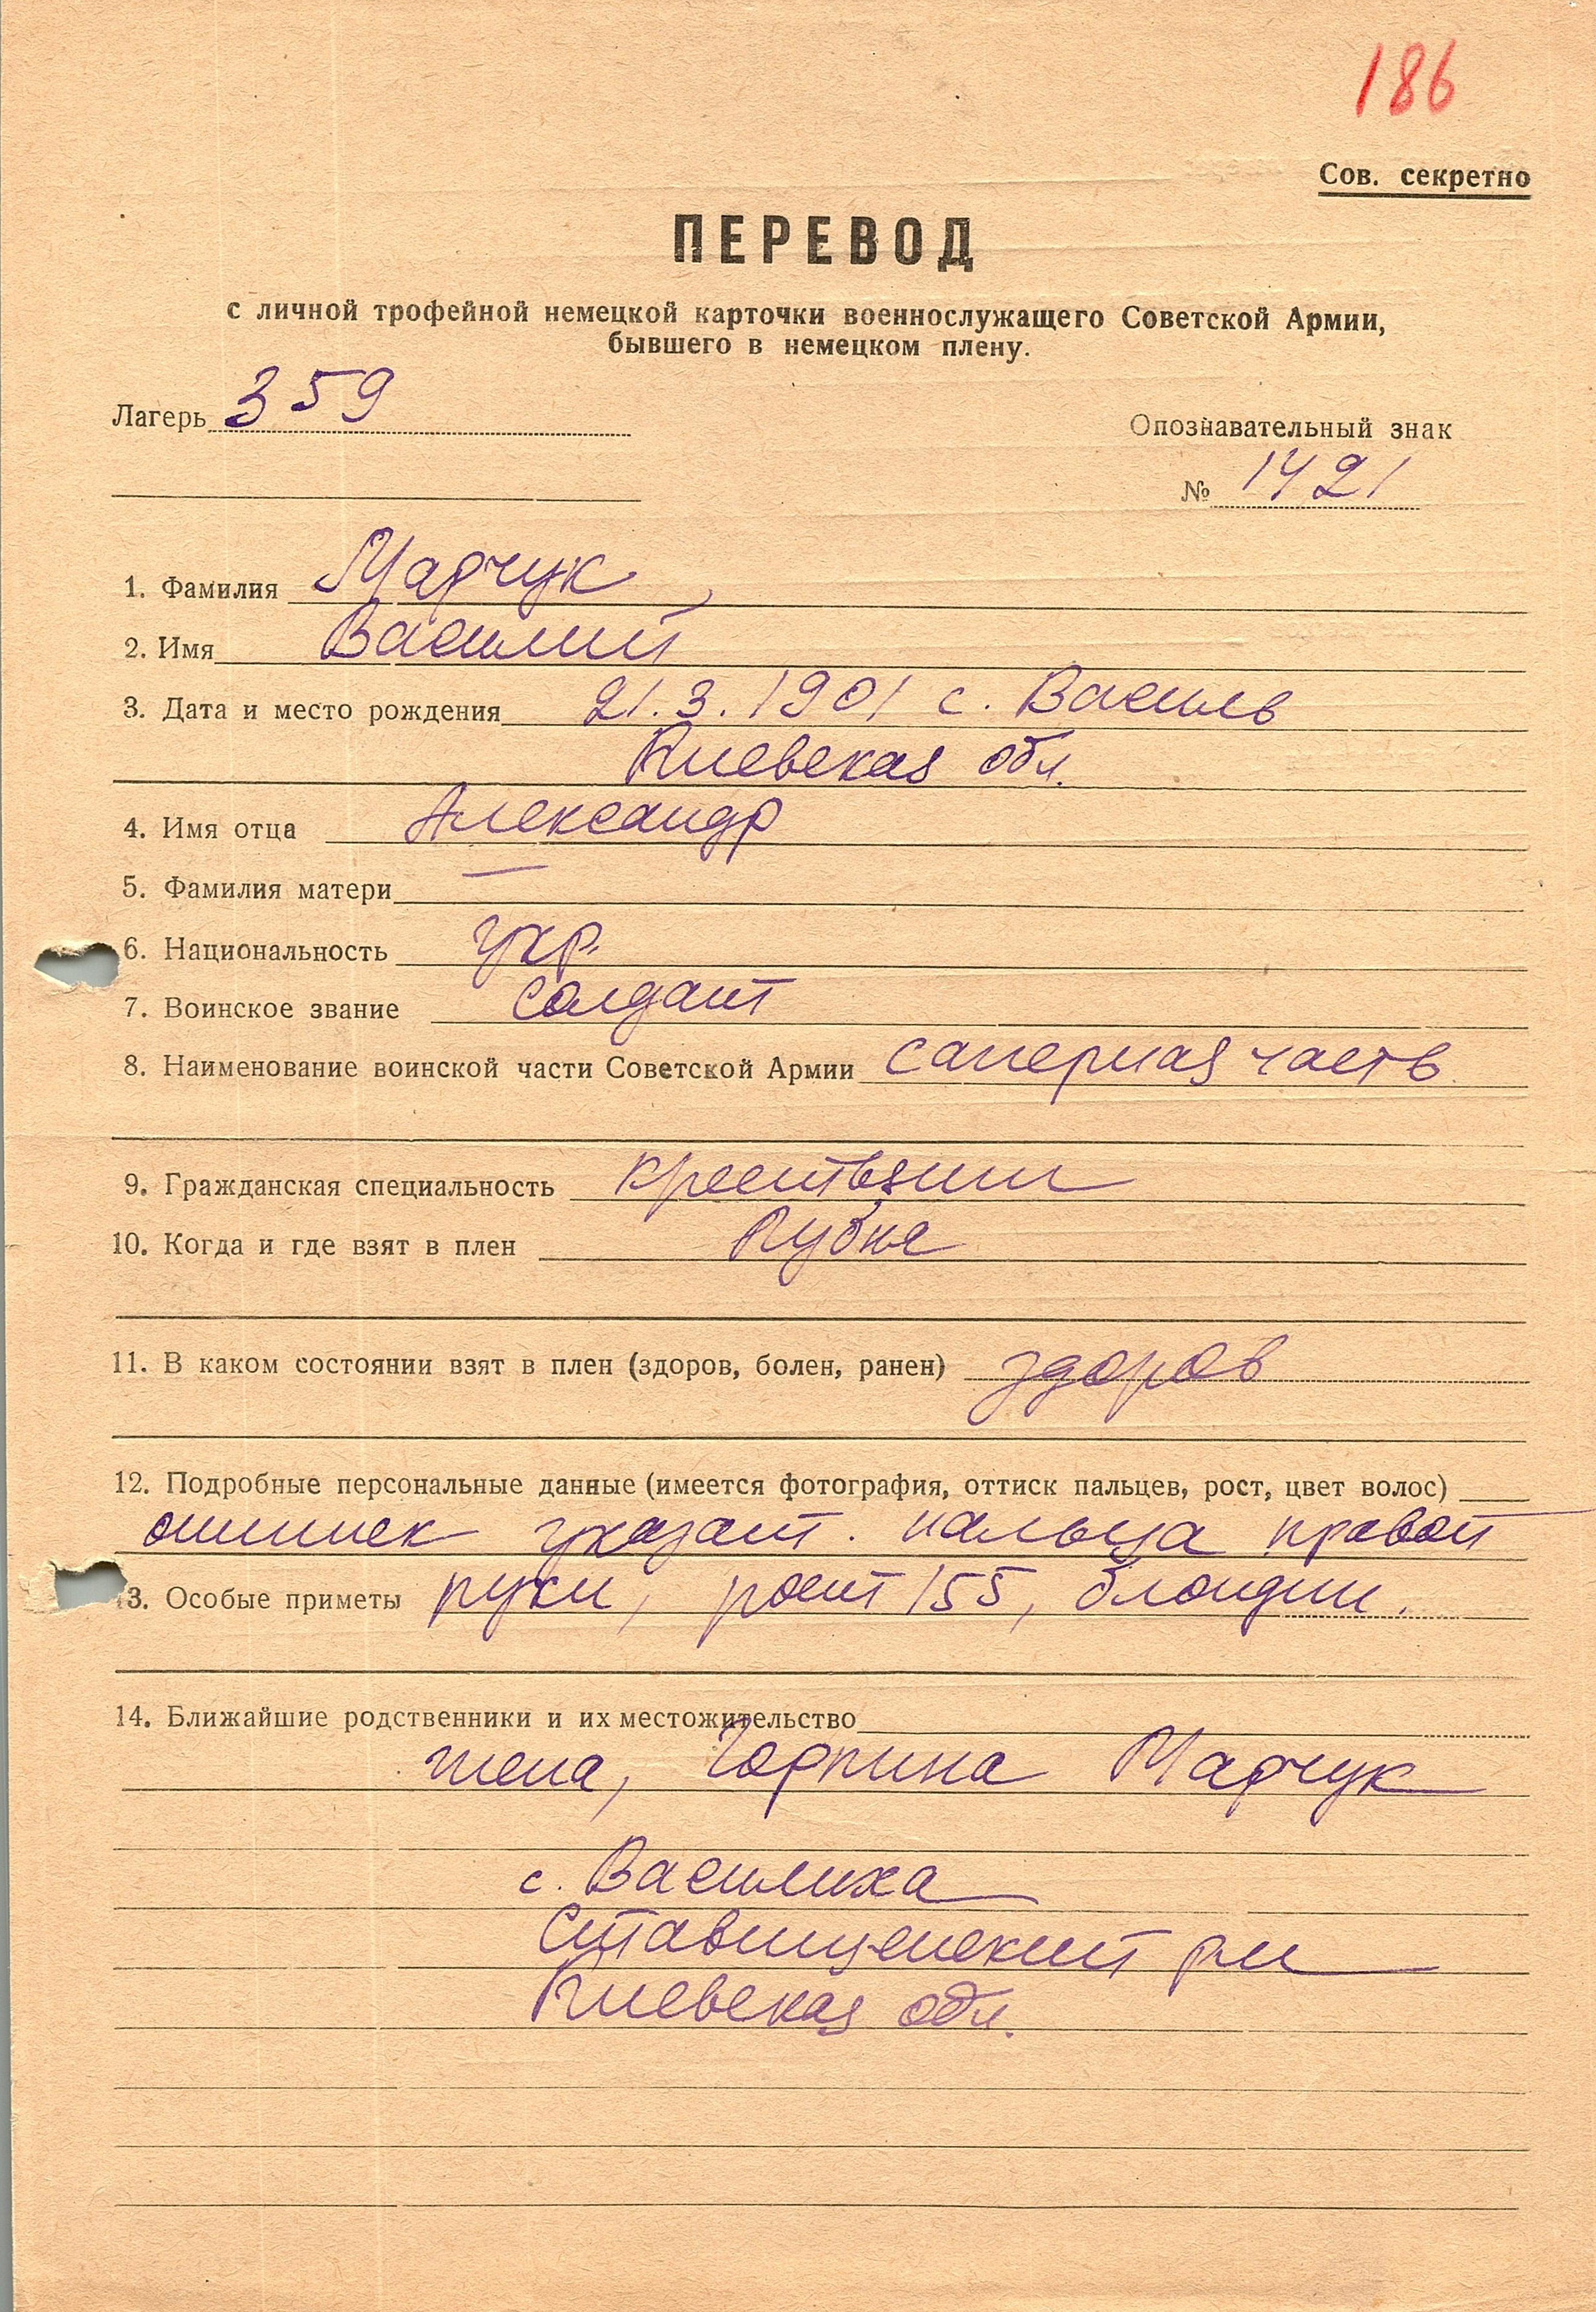 186
Сов. секретно
ПЕРЕВОД
с личной трофейной немецкой карточки военнослужащего Советской Армии,
бывшего в немецком плену.
Лагерь 359
Опознавательный знак
№ 1421
1. Фамилия Марчук
2. Имя Василий
3. Дата и место рождения 21.3.1901 с. Василь
Киевская обл.
4. Имя отца Александр
5. Фамилия матери —
6. Национальность укр.
7. Воинское звание солдат
8. Наименование воинской части Советской Армии саперная часть
9. Гражданская специальность
10. Когда и где взят в плен
11. В каком состоянии взят в плен (здоров, болен, ранен) здоров
12. Подробные персональные данные (имеется фотография, оттиск пальцев, рост, цвет волос)
указат. пальца правой
13. Особые приметы руки, рост 155, блондин.
14. Ближайшие родственники и их местожительство
жена, Горпина Марчук
с. Василиха
Ставищенский р-н
Киевская обл.